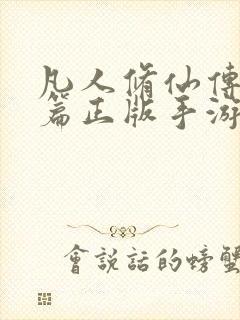 凡人脩仙傳
篇正版手游
會說話的螃蟹